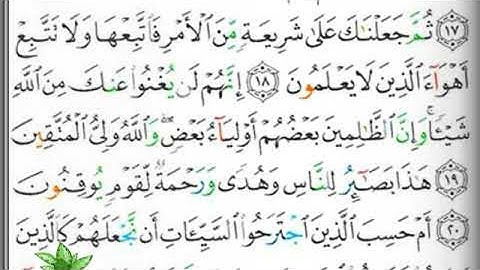 ﴿١٧﴾ ثُمَّ جَعَلْنَٰكَ عَلَىٰ شَرِيعَةٍ مِّنَ ٱلْأَمْرِ فَٱتَّبِعْهَا وَلَا تَتَّبِعْ
أَهْوَآءَ ٱلَّذِينَ لَا يَعْلَمُونَ ﴿١٨﴾ إِنَّهُمْ لَن يُغْنُوا۟ عَنكَ مِنَ ٱللَّهِ
شَيْـًٔا ۚ وَإِنَّ ٱلظَّٰلِمِينَ بَعْضُهُمْ أَوْلِيَآءُ بَعْضٍ ۖ وَٱللَّهُ وَلِىُّ ٱلْمُتَّقِينَ
﴿١٩﴾ هَٰذَا بَصَٰٓئِرُ لِلنَّاسِ وَهُدًى وَرَحْمَةٌ لِّقَوْمٍ يُوقِنُونَ
﴿٢٠﴾ أَمْ حَسِبَ ٱلَّذِينَ ٱجْتَرَحُوا۟ ٱلسَّيِّـَٔاتِ أَن نَّجْعَلَهُمْ كَٱلَّذِينَ